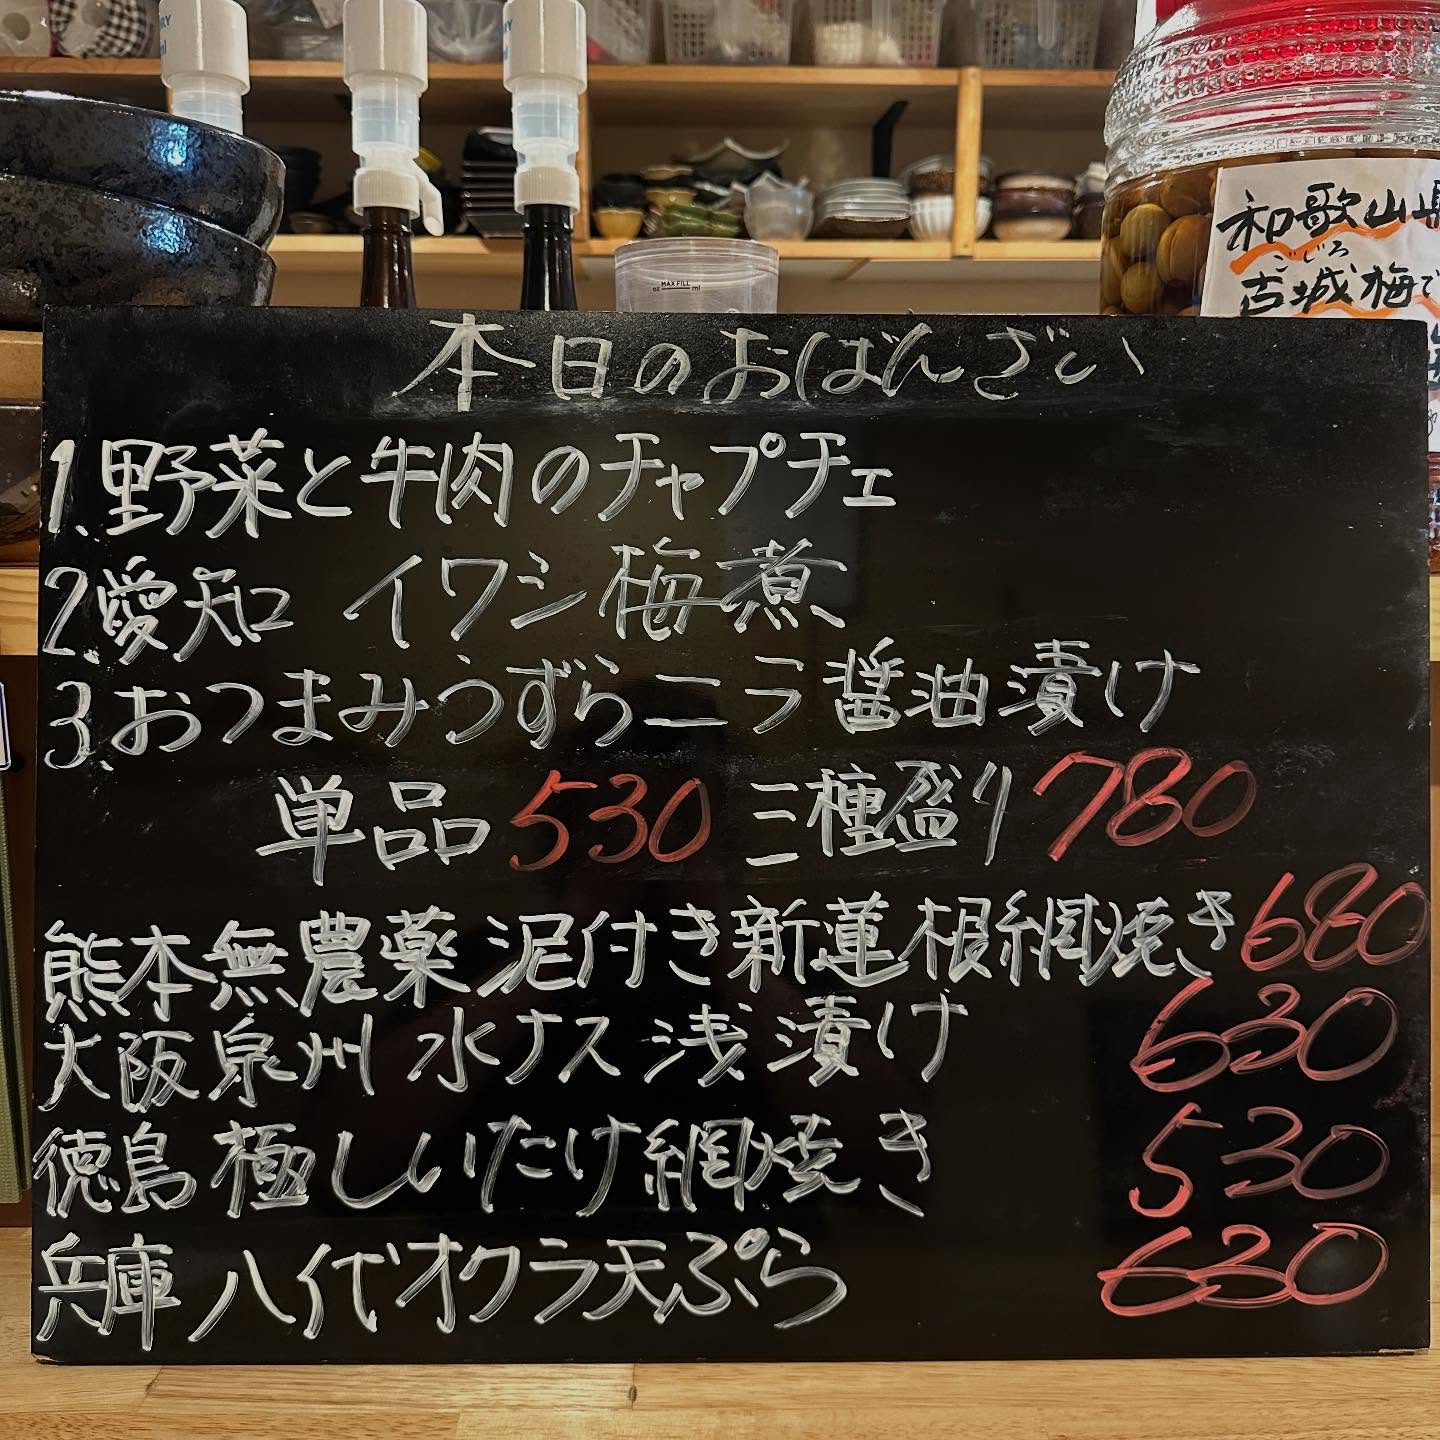 本日のおばんざい
1.野菜と牛肉のチャプチェ
2.愛知 イワシ梅煮
3.おつまみうずらニラ醤油漬け
単品 530 三種盛り 780
熊本無農薬 泥付き新蓮根網焼き 680
大阪泉州 水ナス 浅漬け 630
徳島 極しいたけ網焼き 530
兵庫 八代オクラ天ぷら 630
和歌山県
ごじろ
古城梅で
MAX FILL
oz ml